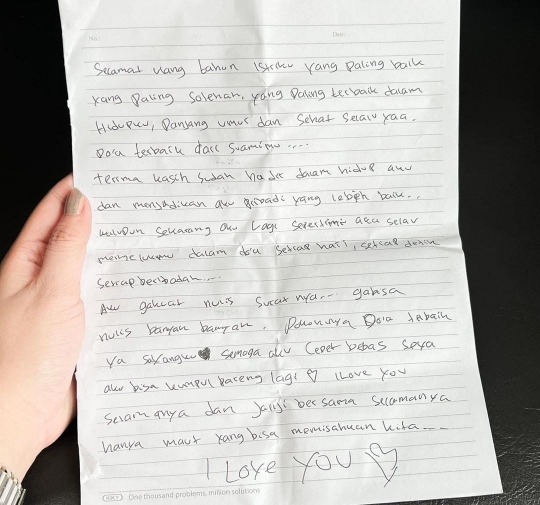 No.: Date:
Selamat ulang tahun Istriku yang paling baik
yang paling Solehah, yang paling terbaik dalam
Hidupku, Panjang umur dan Sehat Selalu yaa.
Do'a terbaik dari Suamimu ....
terima kasih Sudah hadir dalam hidup aku
dan menjadikan aku pribadi yang lebih baik..
walupun Sekarang aku Lagi aku selalu
dalam do'a setiap hari, setiap detik
Setiap beribadah....
Aku gakuat nulis Surat nya... gabisa
nulis banyak banyak. Pokonya Doa terbaik
ya Sayangku Semoga aku Cepet bebas Saya
aku bisa kumpul bareng lagi ♡ I Love you
Selamanya dan Janji bersama Selamanya
hanya maut yang bisa memisahkan kita....
I LOVE YOU
One thousand problems, million solutions